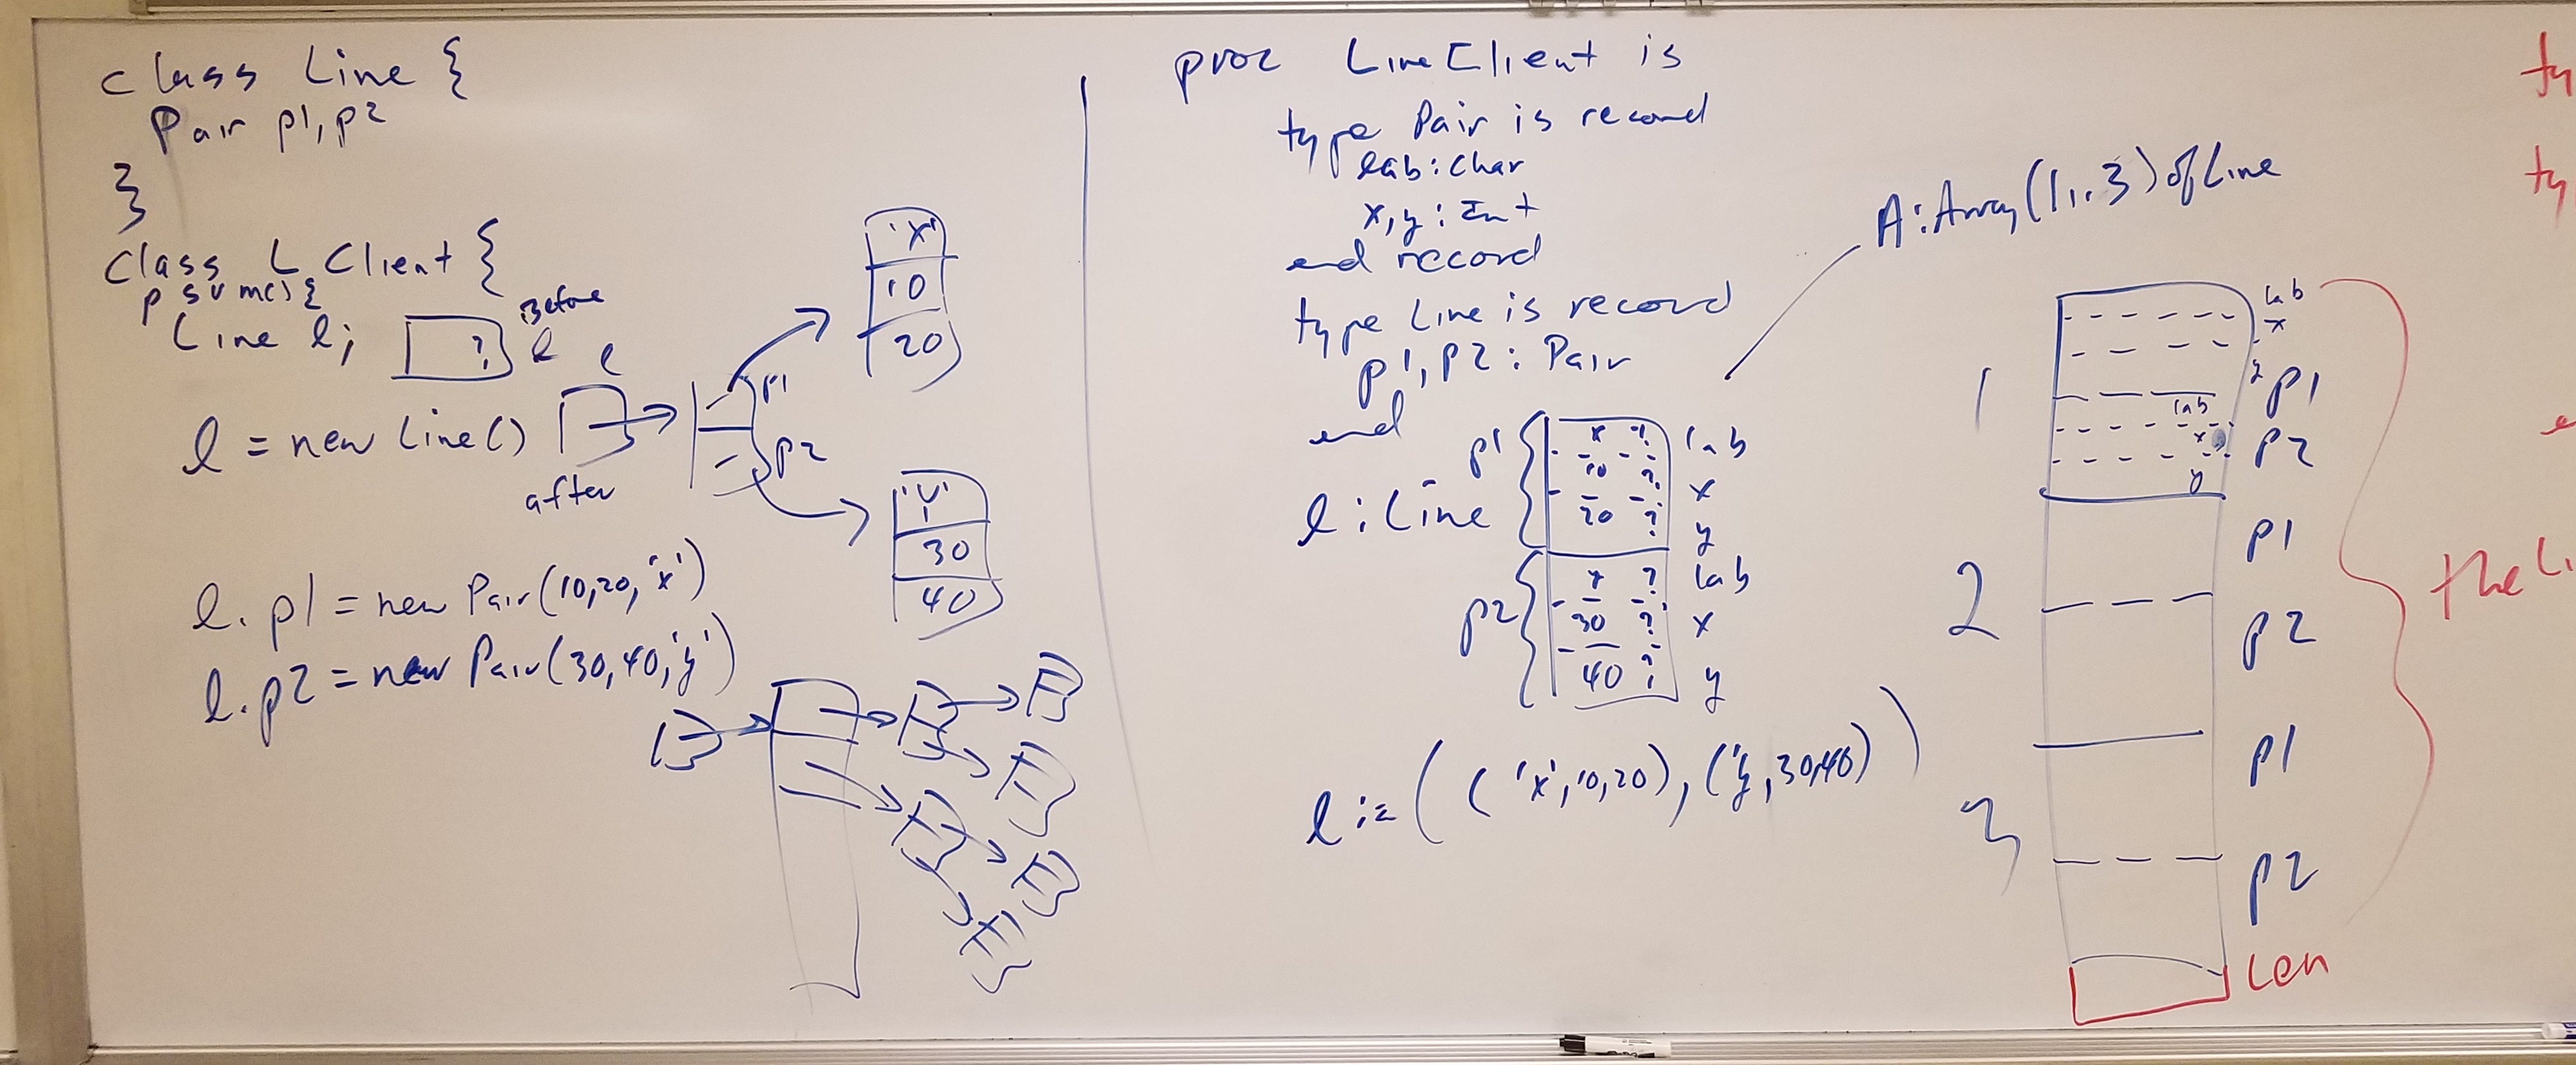 class Line {
Pair p1, p2
}
class L Client {
p s v m() {
Line l;
?
Before
l
l
l = new Line()
after
p1
p2
'X'
10
20
'Y'
30
40
l.p1 = new Pair(10,20,'x')
l.p2 = new Pair(30,40,'y')
proc LineClient is
type Pair is record
lab : Char
x, y : Int
end record
type Line is record
p1, p2 : Pair
end
l : Line
p1
x ? lab
10 ? x
20 ? y
p2
y ? lab
30 ? x
40 ? y
l := ( ( 'x', 10, 20), ('y, 30,40) )
A : Array (1..3) of Line
1
lab
x
y
p1
lab
x
y
p2
2
p1
p2
3
p1
p2
Len
the Li
ty
ty
e